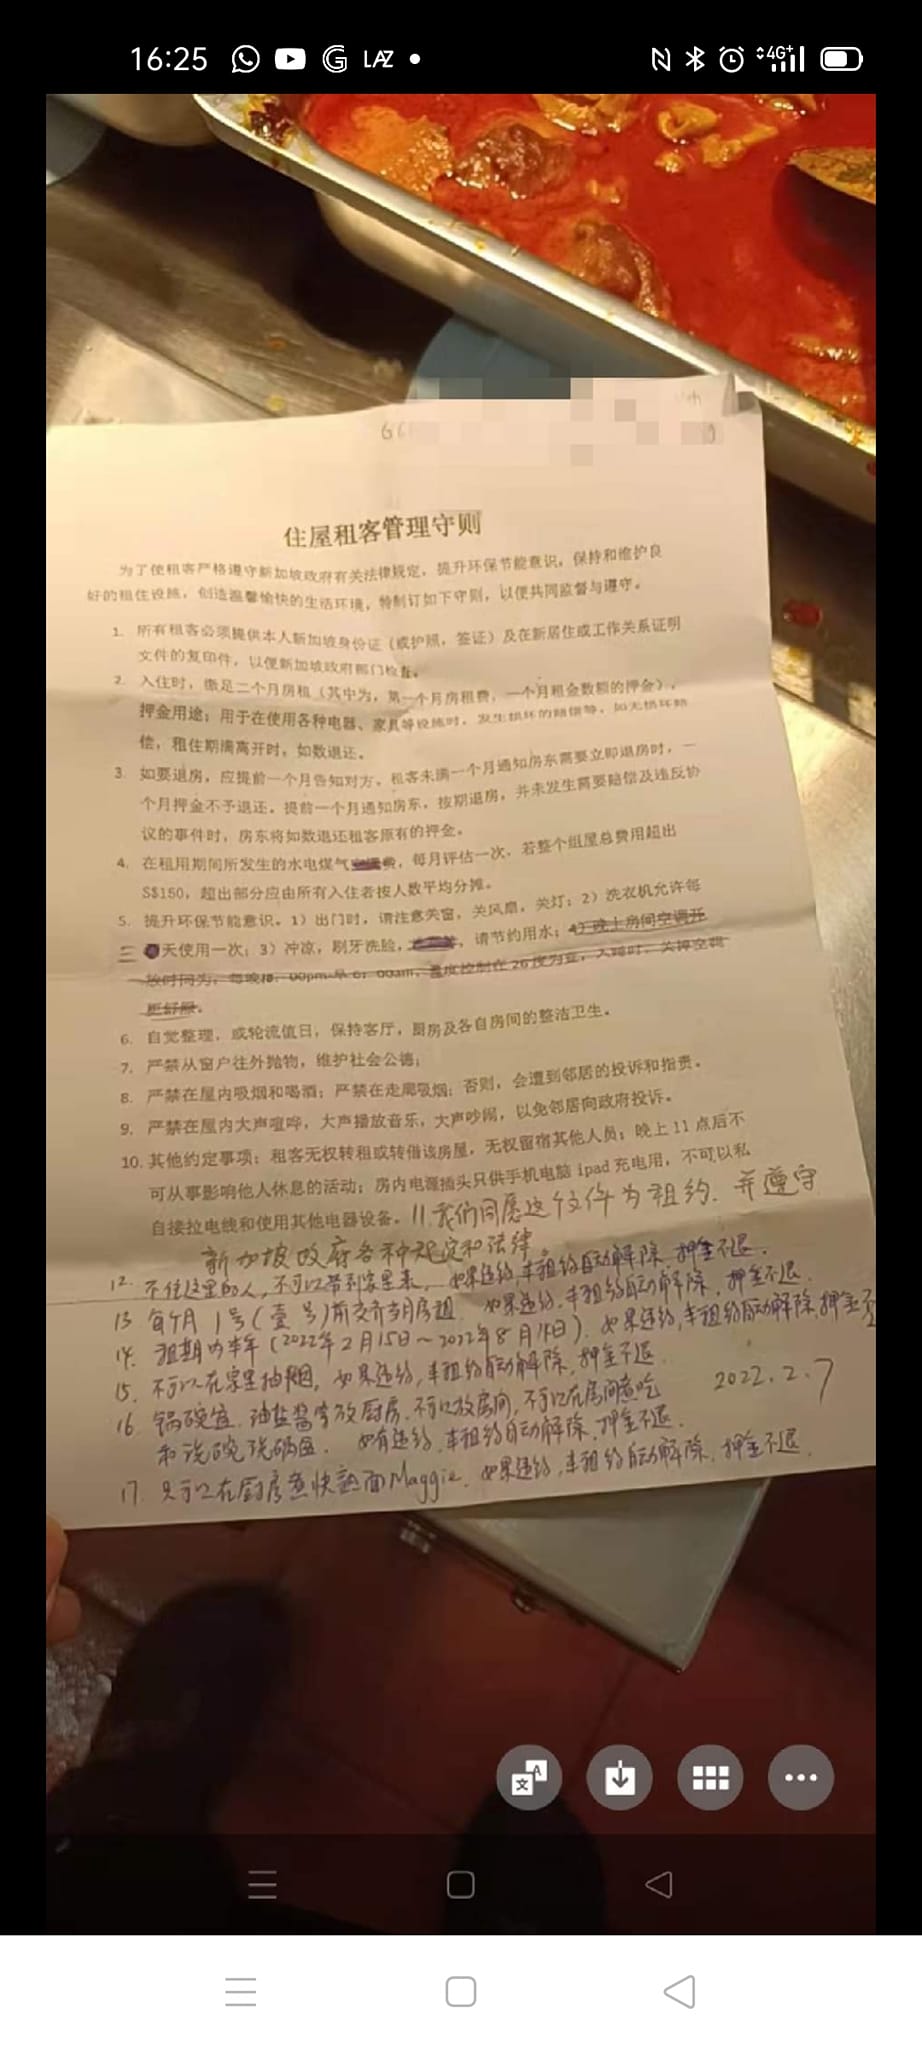 16:25 LAZ 4G+
住屋租客管理守则
为了使租客严格遵守新加坡政府有关法律规定，提升环保节能意识，保持和维护良
好的租住设施，创造温馨愉快的生活环境，特制订如下守则，以便共同监督与遵守。
1. 所有租客必须提供本人新加坡身份证（或护照，签证）及在新居住或工作关系证明
文件的复印件，以便新加坡政府部门检查。
2. 入住时，缴足二个月房租（其中为，第一个月房租费，一个月租金数额的押金）。
押金用途：用于在使用各种电器、家具等设施时，发生损坏的赔偿等，如无损坏赔
偿，租住期满离开时，如数退还。
3. 如要退房，应提前一个月告知对方。租客未满一个月通知房东需要立即退房时，一
个月押金不予退还。提前一个月通知房东，按期退房，并未发生需要赔偿及违反协
议的事件时，房东将如数退还租客原有的押金。
4. 在租用期间所发生的水电煤气费，每月评估一次，若整个组屋总费用超出
S$150，超出部分应由所有入住者按人数平均分摊。
5. 提升环保节能意识。1）出门时，请注意关窗，关风扇，关灯；2）洗衣机允许每
三天使用一次；3）冲凉，刷牙洗脸，请节约用水；4）晚上房间空调开
放时间为，每晚10：00pm-早6：00am，温度控制在26度为宜，入睡时，关掉空调
更舒服。
6. 自觉整理，或轮流值日，保持客厅，厨房及各自房间的整洁卫生。
7. 严禁从窗户往外抛物，维护社会公德；
8. 严禁在屋内吸烟和喝酒；严禁在走廊吸烟；否则，会遭到邻居的投诉和指责。
9. 严禁在屋内大声喧哗，大声播放音乐，大声吵闹，以免邻居向政府投诉。
10. 其他约定事项：租客无权转租或转借该房屋，无权留宿其他人员；晚上11点后不
可从事影响他人休息的活动；房内电源插头只供手机电脑ipad充电用，不可以私
自接拉电线和使用其他电器设备。11.我们同愿这个文件为租约.并遵守
新加坡政府各种规定和法律。
12. 不住这里的人，不可以带到家里来，如果违约，本租约自动解除，押金不退。
13 每个月1号(壹号)前交齐当月房租. 如果违约，本租约自动解除，押金不退.
14. 租期为半年(2022年2月15日～2022年8月14日). 如果违约，本租约自动解除，押金不
15. 不可以在家里抽烟，如果违约，本租约自动解除，押金不退.
2022.2.7
16 锅碗盆，油盐酱等放厨房，不可以放房间，不可以在房间煮吃
和洗碗洗锅盆. 如有违约，本租约自动解除，押金不退.
17. 只可以在厨房煮快熟面Maggie. 如果违约，本租约自动解除，押金不退.